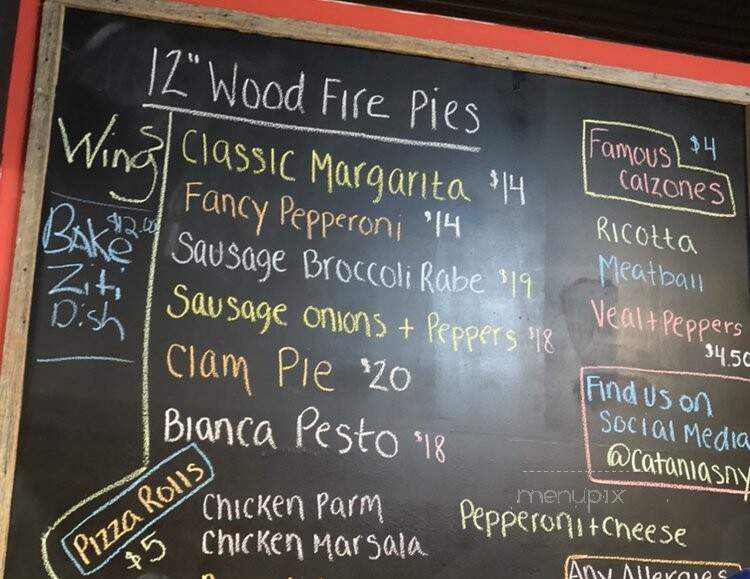 12" Wood Fire Pies
Wings
Bake $12.00
Ziti
Dish
Classic Margarita $14
Fancy Pepperoni $14
Sausage Broccoli Rabe $19
Sausage onions + Peppers $18
Clam Pie $20
Bianca Pesto $18
Famous $4
calzones
Ricotta
Meatball
Veal + Peppers
$4.50
Find us on
Social Media
@cataniasny
menupix
Pizza Rolls
$5
Chicken Parm
Chicken Marsala
Pepperoni + Cheese
Any Allergies